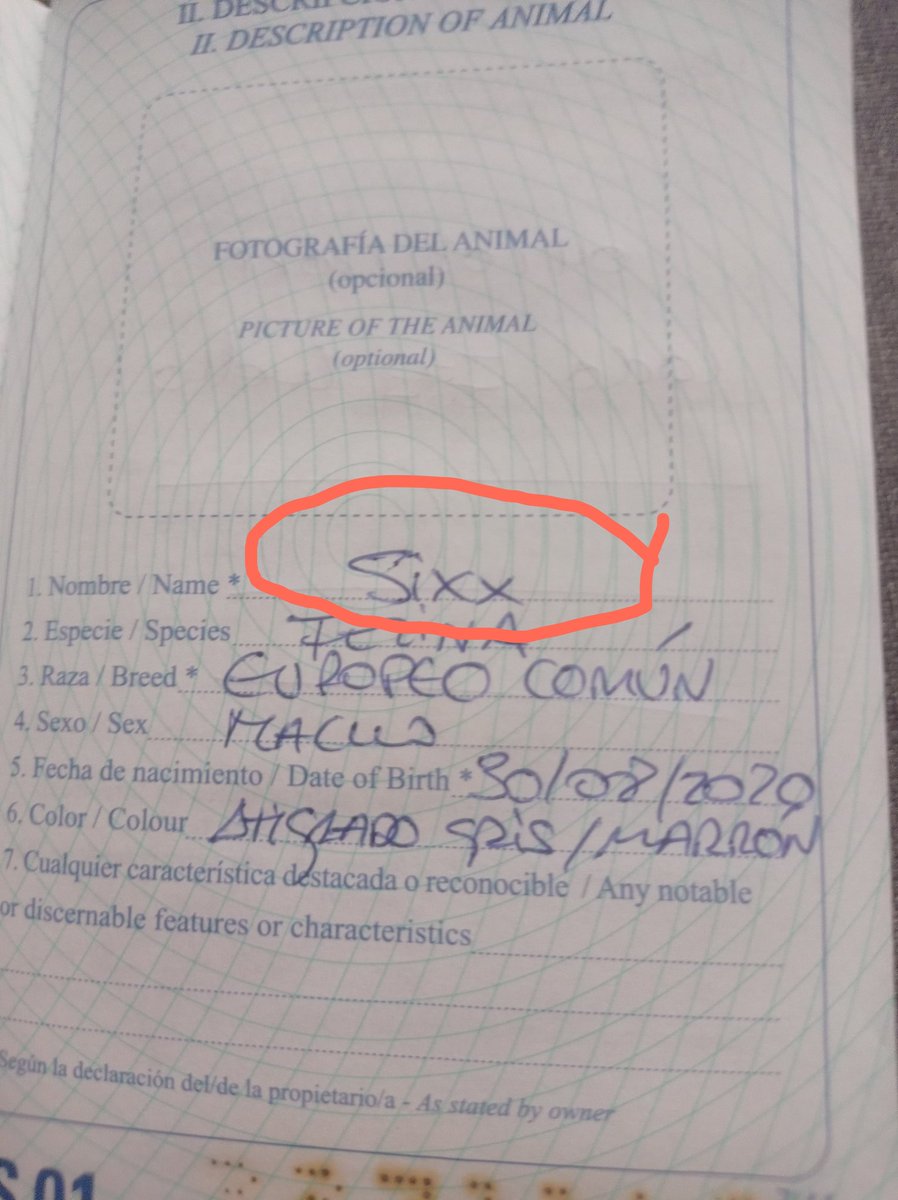 II. DESCRIPCI
II. DESCRIPTION OF ANIMAL
FOTOGRAFÍA DEL ANIMAL
(opcional)
PICTURE OF THE ANIMAL
(optional)
1. Nombre / Name * Sixx
2. Especie / Species FELINA
3. Raza / Breed * EUROPEO COMÚN
4. Sexo / Sex MACHO
5. Fecha de nacimiento / Date of Birth * 30/08/2020
6. Color / Colour ATIGRADO GRIS / MARRÓN
7. Cualquier característica destacada o reconocible / Any notable
or discernable features or characteristics
Según la declaración del/de la propietario/a - As stated by owner
S 01